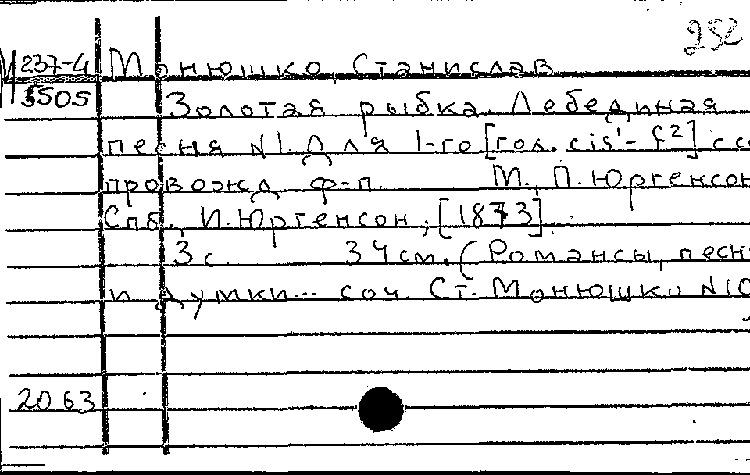 252
М 237-4 Монюшко, Станислав
5505 Золотая рыбка. Лебединая
песня №1. Для 1-го [гол. cis¹- f²] с со
провожд. ф-п. М., П. Юргенсон
Спб., И. Юргенсон, [1873]
3 с. 34 см. (Романсы, песн
и думки... соч. Ст. Монюшки №10
2063